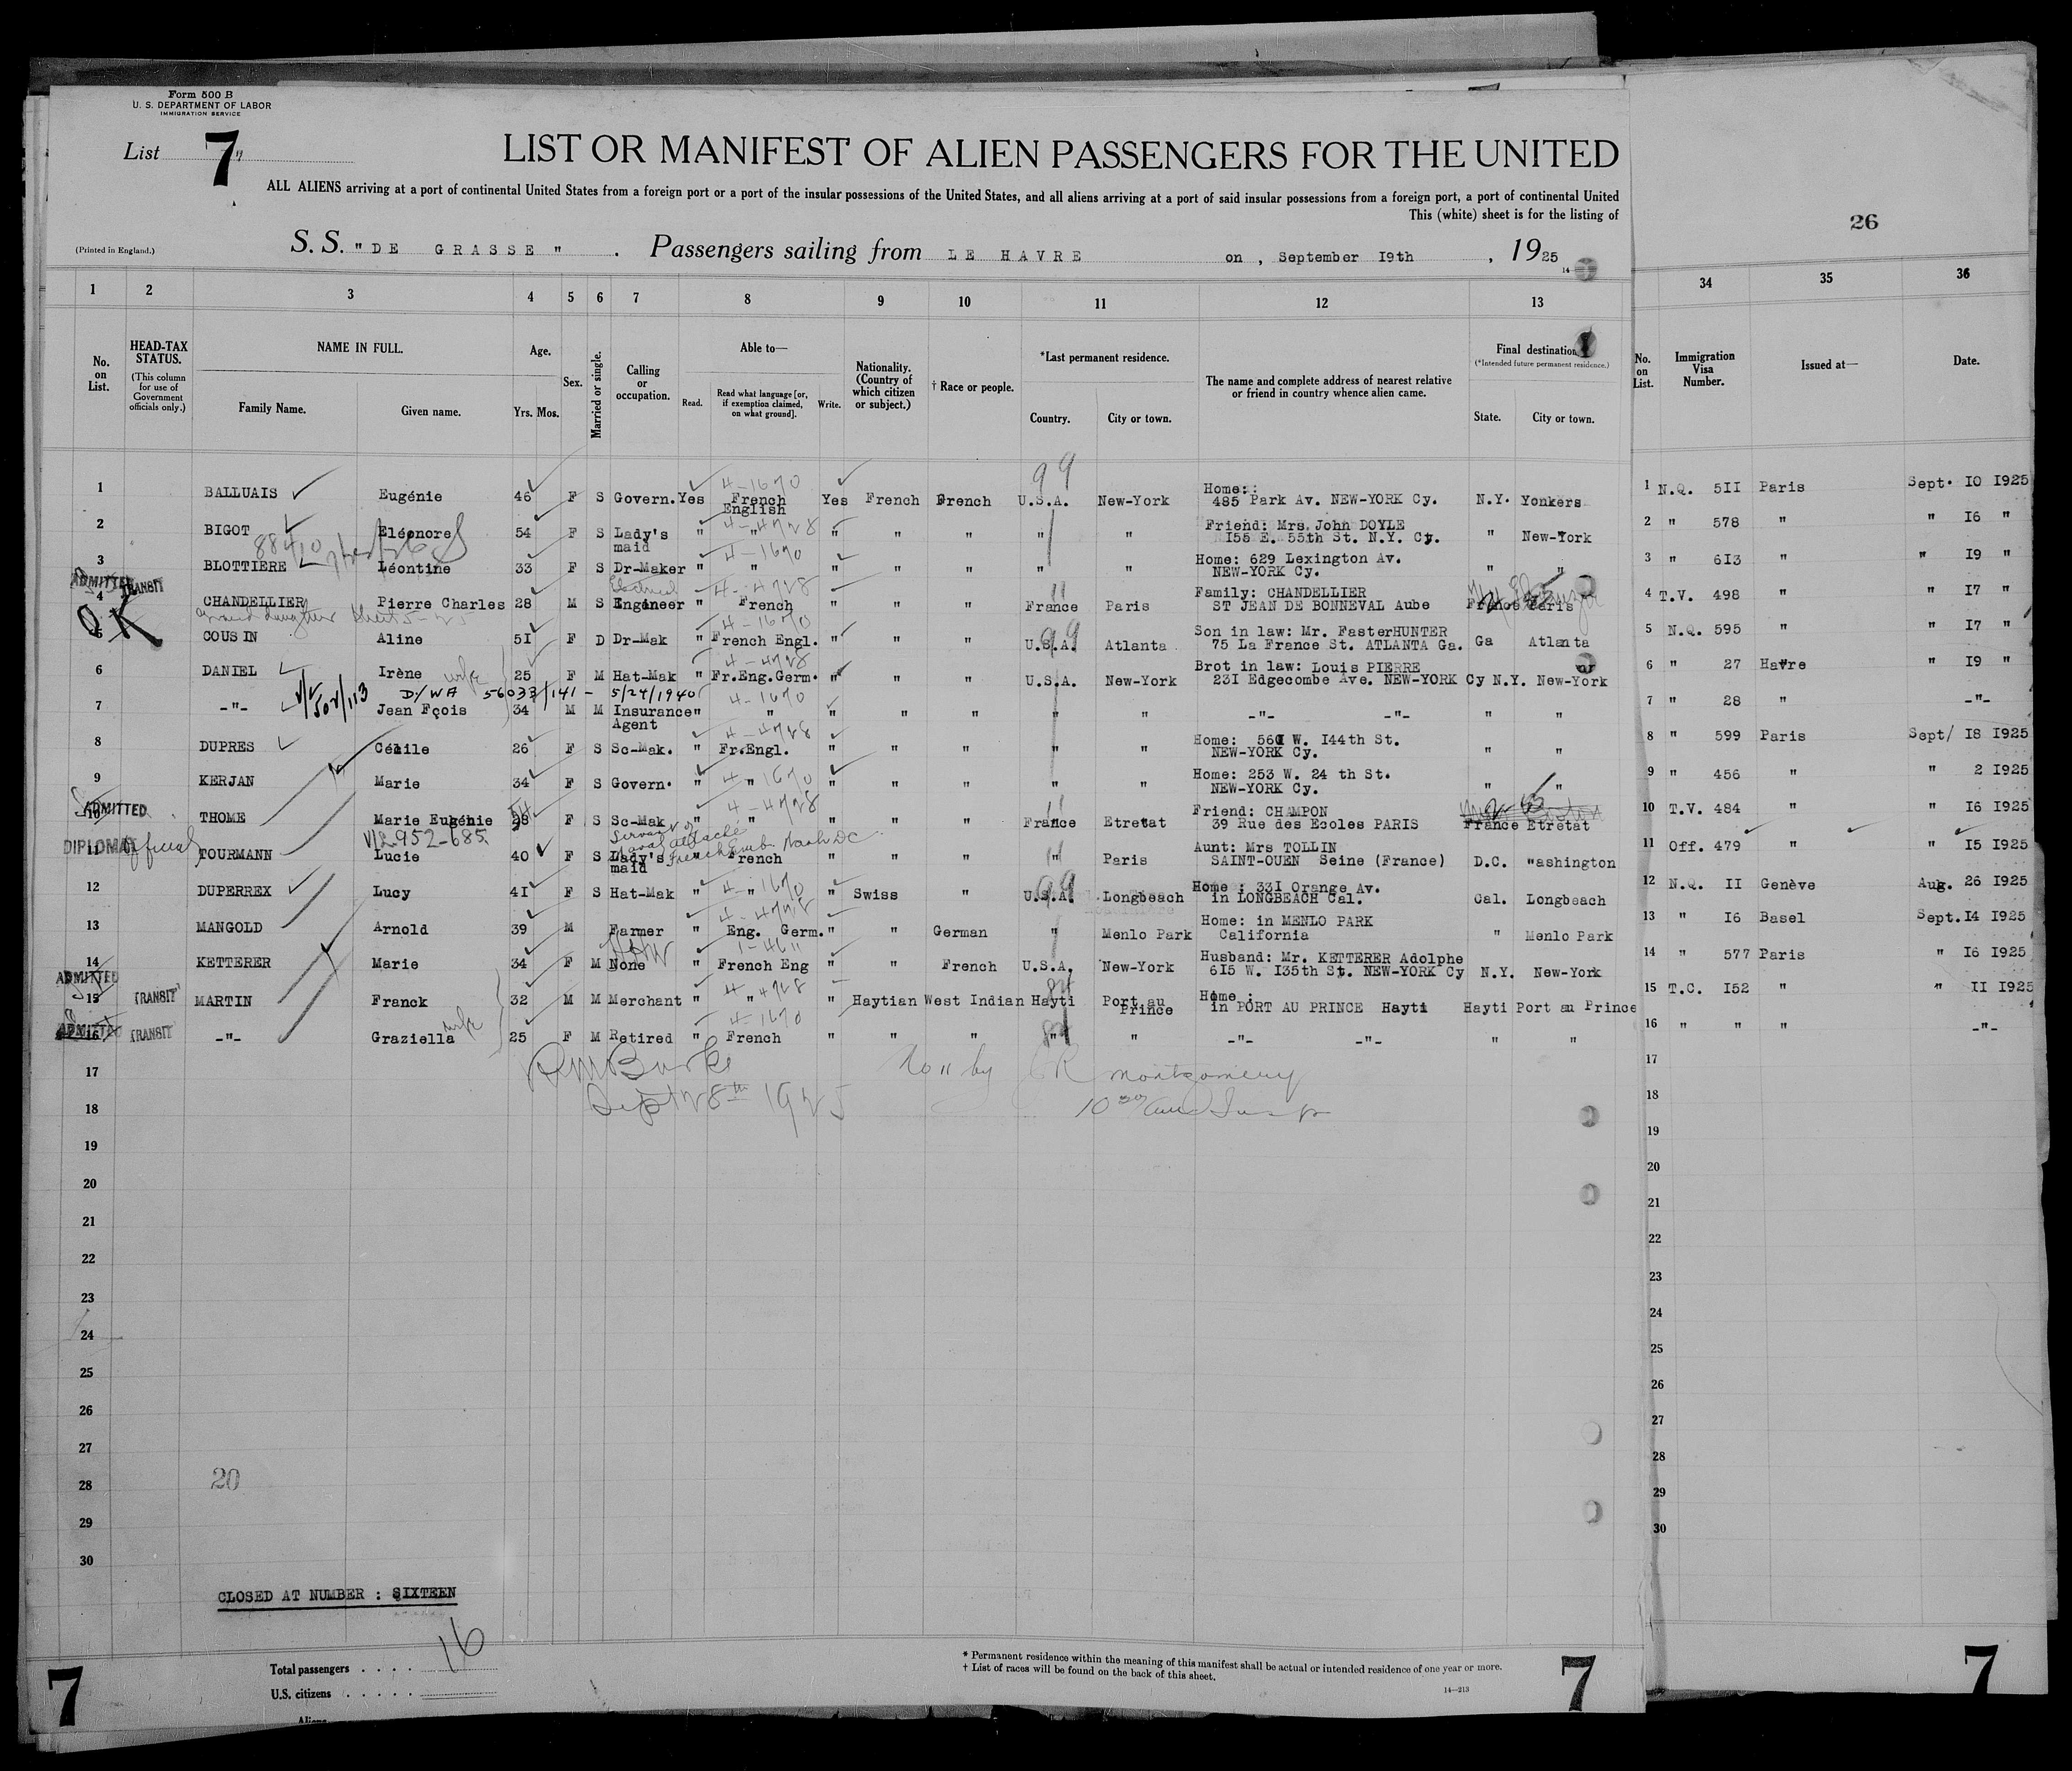 Form 500 B
U. S. DEPARTMENT OF LABOR
IMMIGRATION SERVICE
List 7
LIST OR MANIFEST OF ALIEN PASSENGERS FOR THE UNITED
ALL ALIENS arriving at a port of continental United States from a foreign port or a port of the insular possessions of the United States, and all aliens arriving at a port of said insular possessions from a foreign port, a port of continental United
This (white) sheet is for the listing of
26
(Printed in England.)
S. S. "DE GRASSE" . Passengers sailing from LE HAVRE on , September I9th , 1925
14
1 2 3 4 5 6 7 8 9 10 11 12 13 34 35 36
No. on List.
HEAD-TAX STATUS.
(This column for use of Government officials only.)
NAME IN FULL.
Family Name. Given name.
Age.
Yrs. Mos.
Sex.
Married or single.
Calling or occupation.
Able to—
Read. Read what language [or, if exemption claimed, on what ground]. Write.
Nationality. (Country of which citizen or subject.)
† Race or people.
*Last permanent residence.
Country. City or town.
The name and complete address of nearest relative or friend in country whence alien came.
Final destination
(*Intended future permanent residence.)
State. City or town.
No. on List.
Immigration Visa Number.
Issued at—
Date.
99
4-1670
1 BALLUAIS Eugénie 46 F S Govern. Yes French Yes French French U.S.A. New-York Home: N.Y. Yonkers 1 N.Q. 5II Paris Sept. I0 I925
English 485 Park Av. NEW-YORK Cy.
4-4728
2 BIGOT Eléonore 54 F S Lady's " " " " " " " Friend: Mrs. John DOYLE " New-York 2 " 578 " " I6 "
maid I55 E. 55th St. N.Y. Cy.
4-1670
3 BLOTTIERE Léontine 33 F S Dr-Maker " " " " " " " Home: 629 Lexington Av. " " 3 " 6I3 " " I9 "
NEW-YORK Cy.
ADMITTED TRANSIT
Electrical 4-4728
4 CHANDELLIER Pierre Charles 28 M S Engineer " French " " " France Paris Family: CHANDELLIER France Paris 4 T.V. 498 " " I7 "
ST JEAN DE BONNEVAL Aube
OK
4-1670
5 COUSIN Aline 5I F D Dr-Mak " French Engl. " " " U.S.A. Atlanta Son in law: Mr. FasterHUNTER Ga Atlanta 5 N.Q. 595 " " I7 "
75 La France St. ATLANTA Ga.
4-4728
6 DANIEL Irène wife 25 F M Hat-Mak " Fr.Eng.Germ. " " " U.S.A. New-York Brot in law: Louis PIERRE or 6 " 27 Havre " I9 "
23I Edgecombe Ave. NEW-YORK Cy N.Y. New-York
D/WA 56033/141 - 5/24/1940
4-1670
7 -"- Jean Fçois 34 M M Insurance " " " " " " " -"- -"- " " 7 " 28 " -"-
Agent
4-4728
8 DUPRES Cécile 26 F S Sc-Mak. " Fr.Engl. " " " " " Home: 56I W. I44th St. " " 8 " 599 Paris Sept/ I8 I925
NEW-YORK Cy.
4-1670
9 KERJAN Marie 34 F S Govern. " " " " " " " Home: 253 W. 24 th St. " " 9 " 456 " " 2 I925
NEW-YORK Cy.
ADMITTED
4-4728
10 THOME Marie Eugénie F S Sc-Mak " " " " " France Etretat Friend: CHAMPON France Etretat 10 T.V. 484 " " I6 I925
39 Rue des Ecoles PARIS
V/L 952-685
Servant of Naval attaché French Emb. Wash DC
DIPLOMAT Official
11 TOURMANN Lucie 40 F S Lady's " French " " " " Paris Aunt: Mrs TOLLIN D.C. "ashington 11 Off. 479 " " I5 I925
maid SAINT-OUEN Seine (France)
4-1670
12 DUPERREX Lucy 4I F S Hat-Mak " " " Swiss " U.S.A. Longbeach Home : 33I Orange Av. Cal. Longbeach 12 N.Q. II Genève Aug. 26 I925
in LONGBEACH Cal.
4-4728
13 MANGOLD Arnold 39 M Farmer " Eng. Germ. " " German " Menlo Park Home: in MENLO PARK " Menlo Park 13 " I6 Basel Sept. I4 I925
California
14 KETTERER Marie 34 F M None " French Eng " " French U.S.A. New-York Husband: Mr. KETTERER Adolphe N.Y. New-York 14 " 577 Paris " I6 I925
6I5 W. I35th St. NEW-YORK Cy
ADMITTED TRANSIT
4-4728
15 MARTIN Franck 32 M M Merchant " " " Haytian West Indian Hayti Port au Prince Home : Hayti Port au Prince 15 T.C. I52 " " II I925
in PORT AU PRINCE Hayti
ADMITTED TRANSIT
4-1670
16 -"- Graziella wife 25 F M Retired " French " " " " " -"- -"- " " 16 " " " -"-
17 17
No 11 by R Montgomery
18 Sept 28th 1925 18
19 19
20 20
21 21
22 22
23 23
24 24
25 25
26 26
27 27
28 20 28
29 29
30 30
CLOSED AT NUMBER : SIXTEEN
Total passengers . . . . 16
U.S. citizens . . . . .
Aliens
* Permanent residence within the meaning of this manifest shall be actual or intended residence of one year or more.
† List of races will be found on the back of this sheet.
14—213
7 7 7